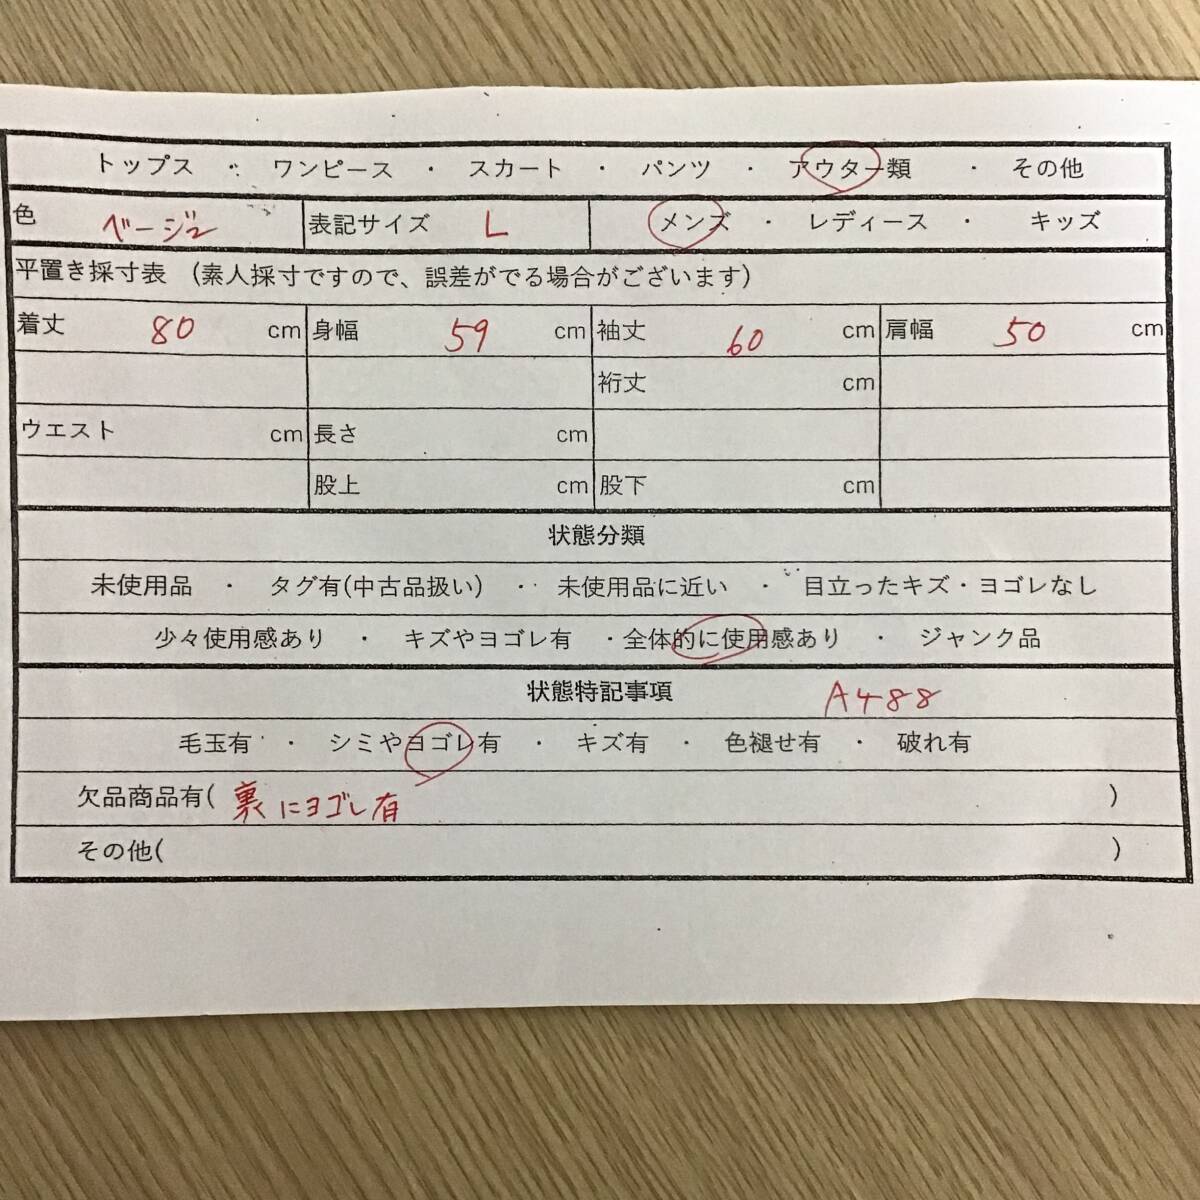 トップス ・ ワンピース ・ スカート ・ パンツ ・ アウター類 ・ その他
色 ベージュ 表記サイズ L メンズ ・ レディース ・ キッズ
平置き採寸表 (素人採寸ですので、誤差がでる場合がございます)
着丈 80 cm 身幅 59 cm 袖丈 60 cm 肩幅 50 cm
裄丈 cm
ウエスト cm 長さ cm
股上 cm 股下 cm
状態分類
未使用品 ・ タグ有(中古品扱い) ・ 未使用品に近い ・ 目立ったキズ・ヨゴレなし
少々使用感あり ・ キズやヨゴレ有 ・全体的に使用感あり ・ ジャンク品
状態特記事項 A488
毛玉有 ・ シミやヨゴレ有 ・ キズ有 ・ 色褪せ有 ・ 破れ有
欠品商品有( 裏にヨゴレ有 )
その他( )